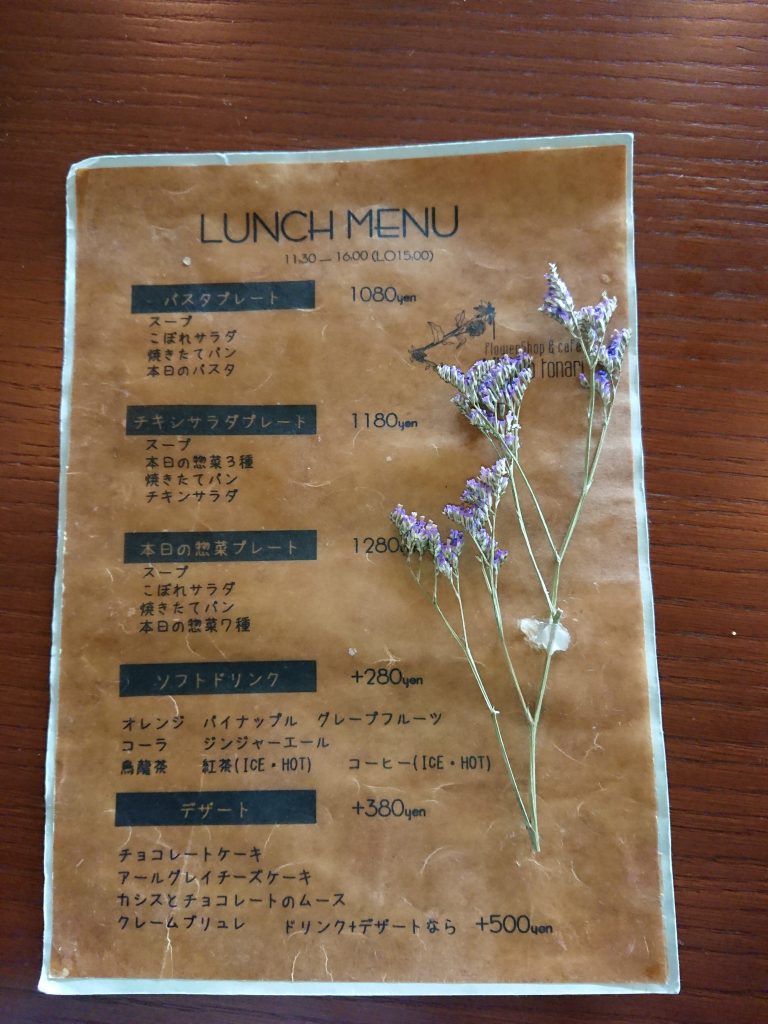 LUNCH MENU
11:30 — 16:00 (LO15:00)
パスタプレート 1080yen
スープ
こぼれサラダ
焼きたてパン
本日のパスタ
Flower Shop & cafe
tonari
チキンサラダプレート 1180yen
スープ
本日の惣菜3種
焼きたてパン
チキンサラダ
本日の惣菜プレート 1280
スープ
こぼれサラダ
焼きたてパン
本日の惣菜7種
ソフトドリンク +280yen
オレンジ パイナップル グレープフルーツ
コーラ ジンジャーエール
烏龍茶 紅茶(ICE・HOT) コーヒー(ICE・HOT)
デザート +380yen
チョコレートケーキ
アールグレイチーズケーキ
カシスとチョコレートのムース
クレームブリュレ ドリンク+デザートなら +500yen